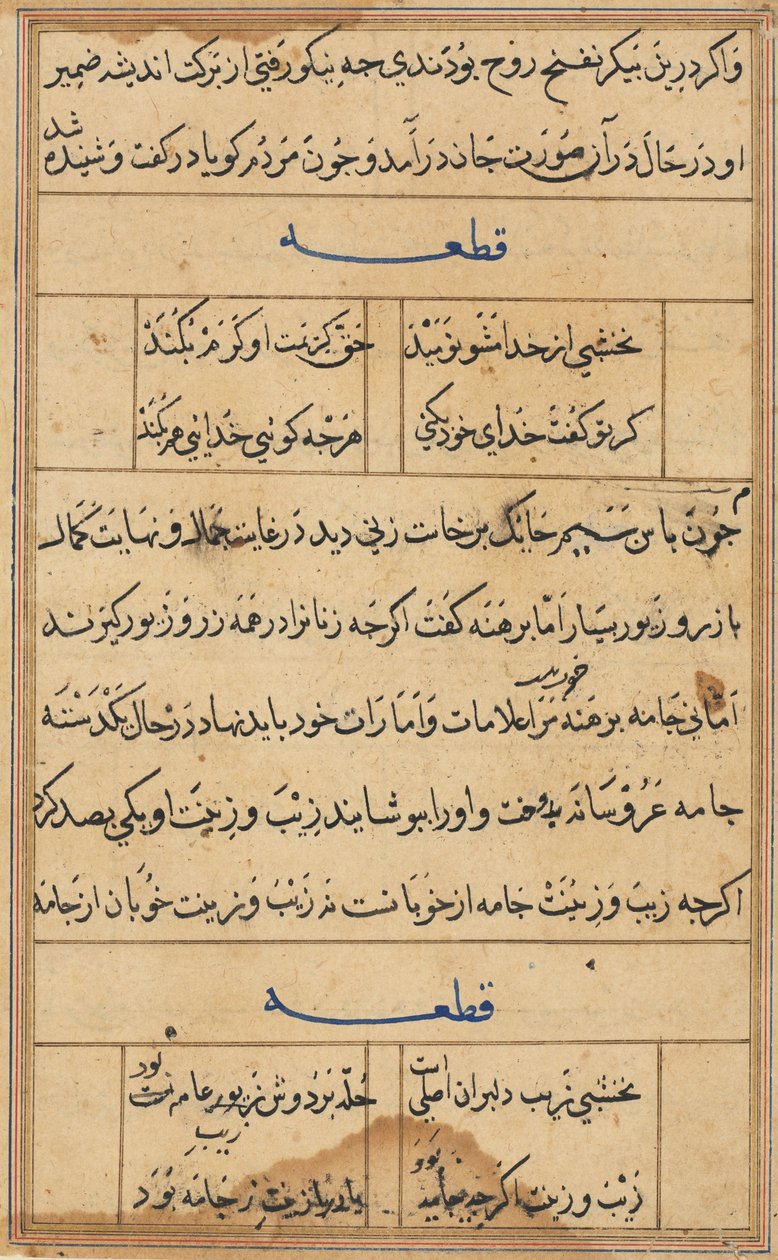 واکر درین بیکر نفخ روح بودندی جه نیکو رفتی از برکت اندیشه ضمیر
شد
او در حال در آن صورت جان درآمد و جون مردم کویا در کفت و شنیده
قطعه
نخشبی از خدا مشو نومید
حق کریمت او کرم بکند
کر تو کفت خدای خود بکنی
هرجه کوئی خدا همی بکند
جون باس سیم برخاست زنی دید در غایت جمال و نهایت کمال
با زر و زیور بسیار اما برهنه کفت اکرجه زنانرا در همه زر و زیور کیرند
خویش
اما نی جامه برهنه مرا علامات و امارات خود باید نهاد در حال یکدسته
جامه عروسانه بدوخت و اورا بپوشانید زیب و زینت او یکی بصد کرد
اکرجه زیب و زینت جامه از خوبانست نه زیب و زینت خوبان از جامه
قطعه
نخشبی زیب دلبران اصلی است
حله بر دوش زیور عامه بود
زیب
زیب و زینت اکرجه بود
زینت ز جامه بود